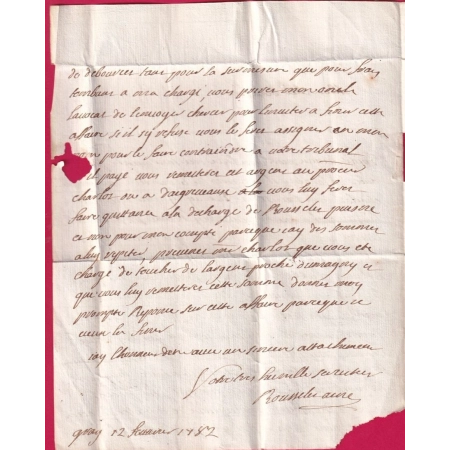 de debourcer tant pour la surmesure que pour frais
tombant a mon charge vous pouvez mon oncle
lavocat de lenvoyer chercer pour l'exiter a finir cette
affaire si il s'y refuse vous le fere assigner en mon
nom pour le faire contraindre a votre tribunal
il paye vous remettrez cet argent au procur
charlot ou a daigremeaux vous luy ferez
faire quittance a la decharge de Rousselet
ce non pour mon compte parceque jay des sommes
a luy repeter, prevenez me charlot que vous etes
chargé de toucher de largent proche de magny
que vous luy remettrez cette somme donnez moy
prompte Reponse sur cette affaire parceque
veux la finir
jay lhonneur detre avec un sincer attachement
Votre tres humble serviteur
Rousselet
gray 12 fevrier 1782